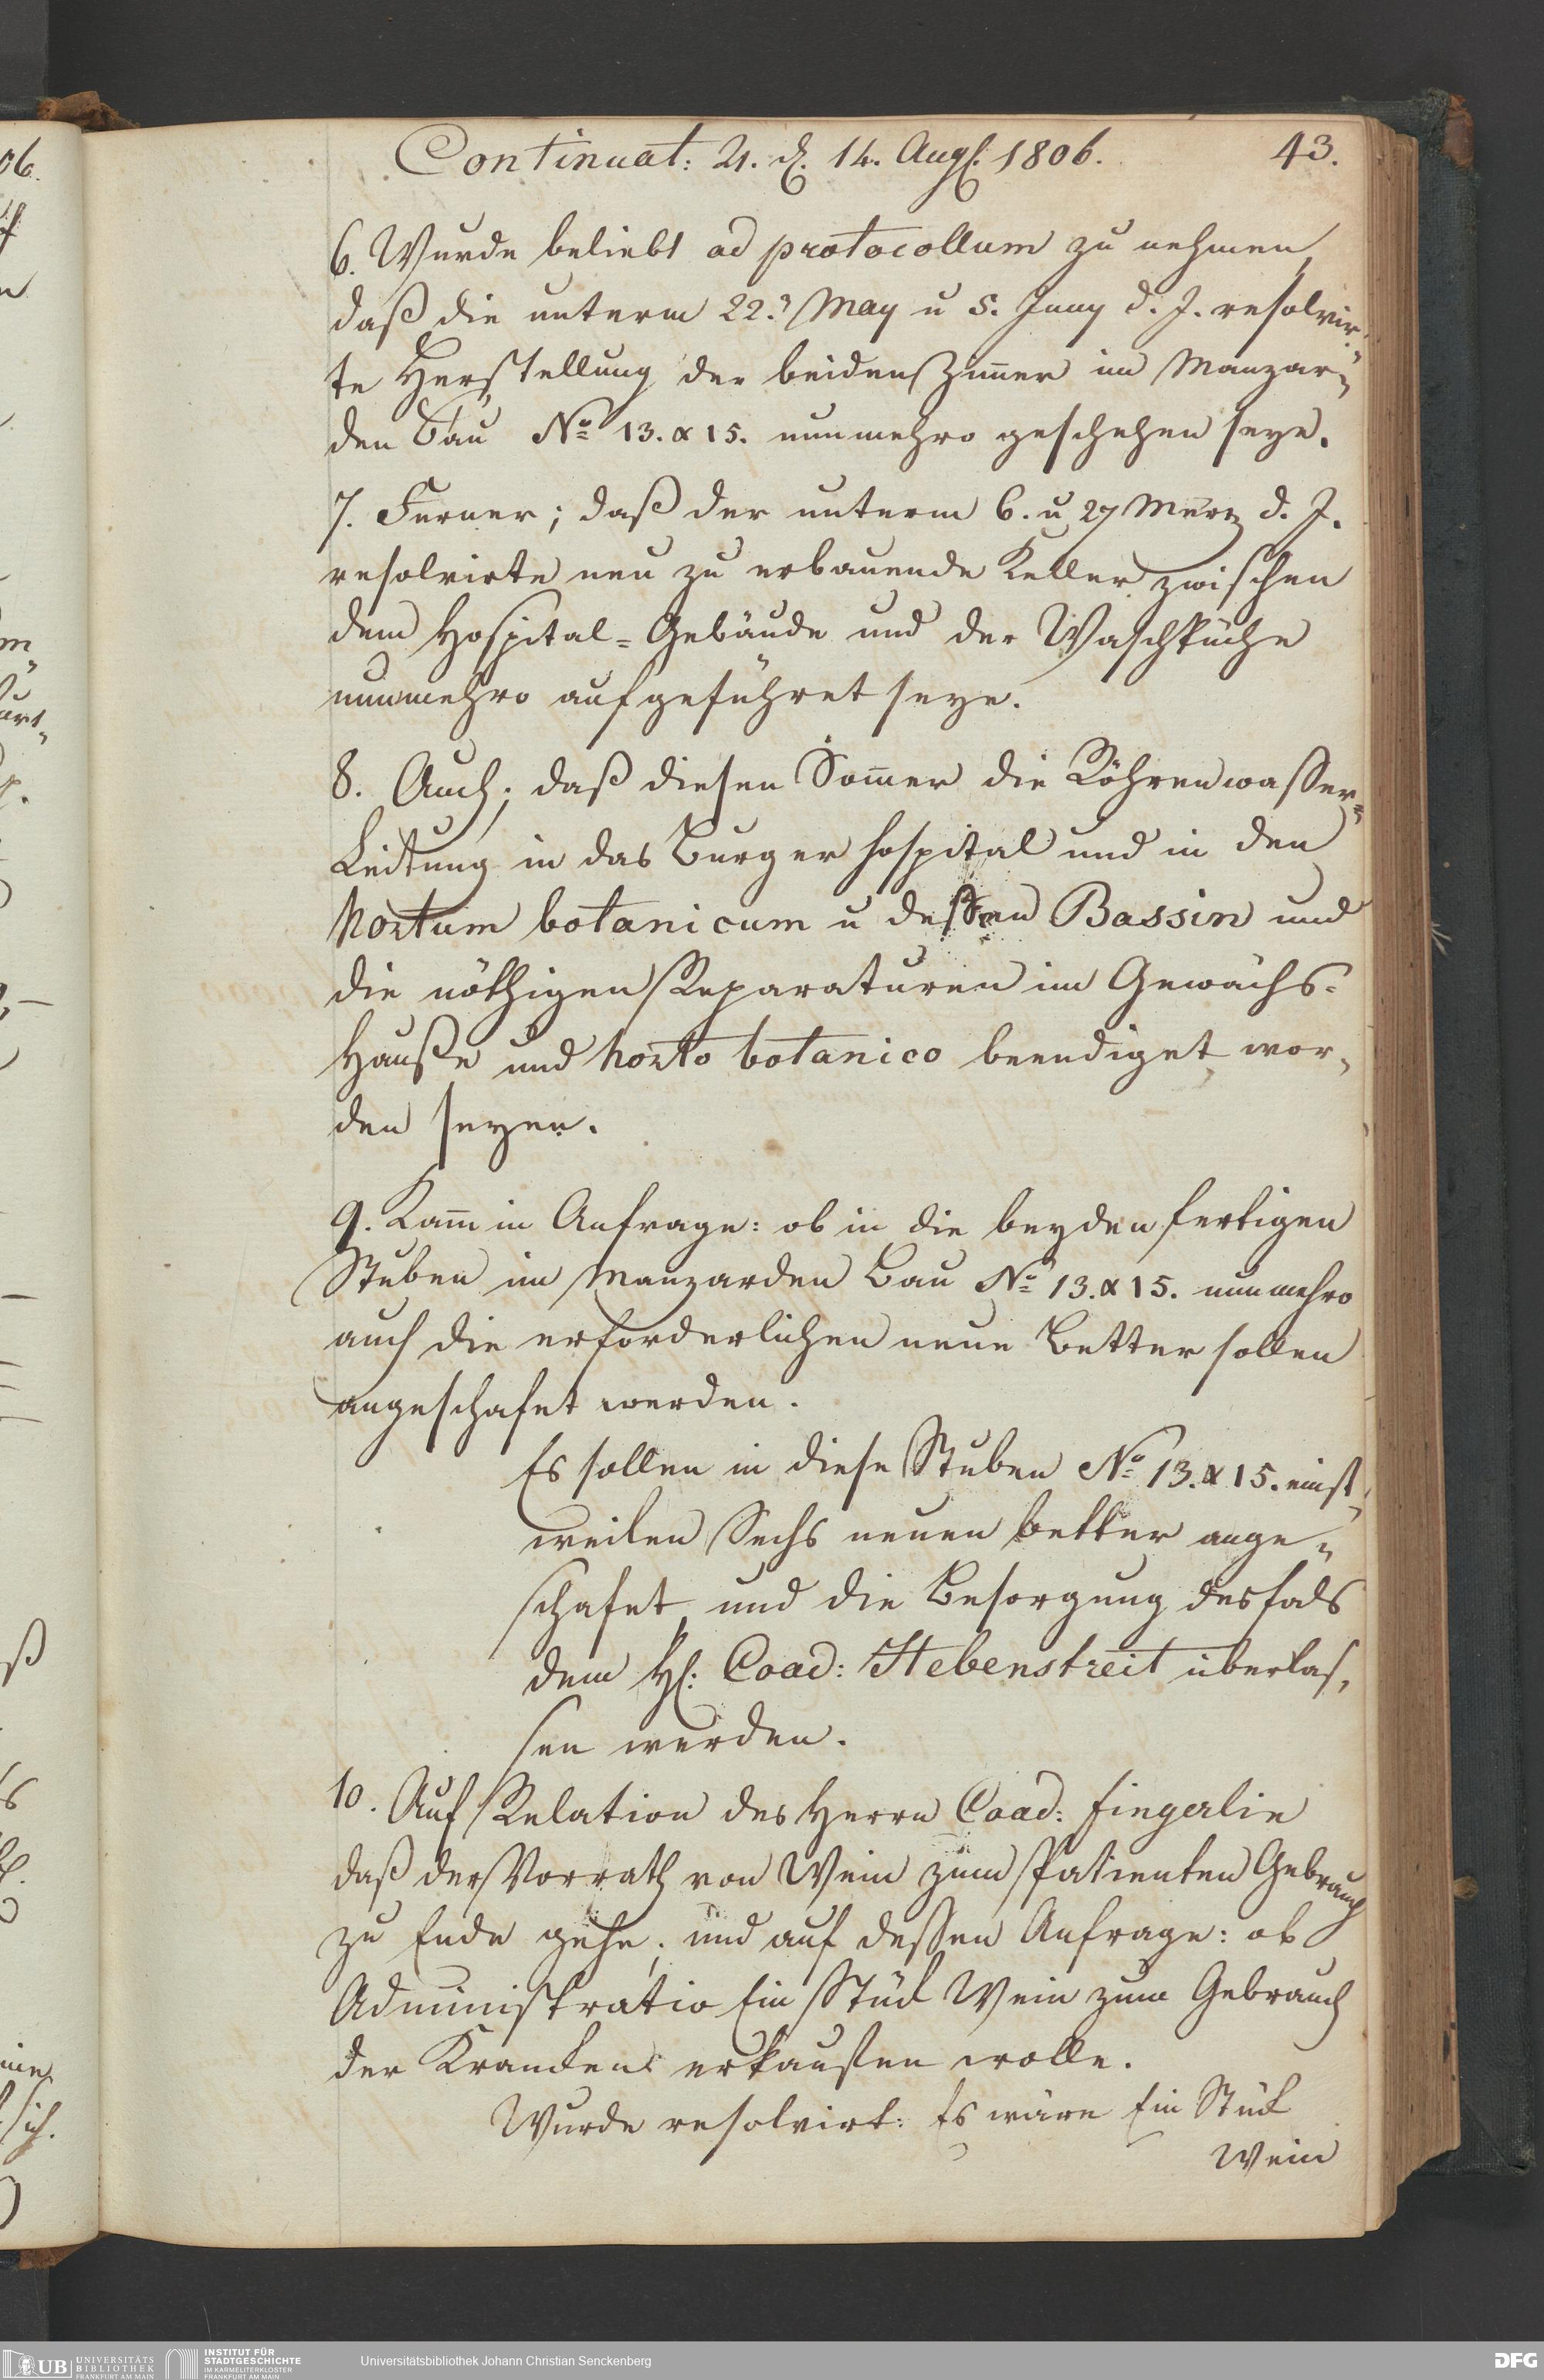 Continuat: 21. d. 14. Aug. 1806.
43.
6. Wurde beliebt ad protocollum zu nehmen,
daß die unterm 22.ⁿ May u 5. Juny d. J. resolvir„
te Herstellung der beiden Zim̅er im Manzar„
den Bau No 13. & 15. nunmehro geschehen seye.
7. Ferner; daß der unterm 6. u 27 Merz d. J.
resolvirte neu zu erbauende Keller zwischen
dem Hospital=Gebäude und der Waschküche
nunmehro aufgeführet seye.
8. Auch; daß diesen Som̅er die Röhrenwasser=
Leitung in das Burger hospital und in den
Hortum botanicum u dessen Bassin und
die nöthigen Reparaturen im Gewächs=
Hauße und horto botanico beendiget wor„
den seyen.
9. Kam̅ in Anfrage: ob in die beyden fertigen
Stuben im Manzarden Bau No 13. & 15. nunmehro
auch die erforderlichen neue Better sollen
angeschafet werden.
Es sollen in diese Stuben No 13. & 15. einst„
weilen Sechs neuen better ange„
schafet, und die Besorgung desfals
dem H: Coad: Hebenstreit überlas„
sen werden.
10. Auf Relation des Herrn Coad: Fingerlin
daß der Vorrath von Wein zum Patienten Gebrauch
zu Ende gehe; und auf dessen Anfrage: ob
Administratio Ein Stück Wein zum Gebrauch
der Krancken erkaufen wolle.
Wurde resolvirt: Es wäre Ein Stück
Wein
UB UNIVERSITÄTS
BIBLIOTHEK
FRANKFURT AM MAIN
INSTITUT FÜR
STADTGESCHICHTE
IM KARMELITERKLOSTER
FRANKFURT AM MAIN
Universitätsbibliothek Johann Christian Senckenberg
DFG